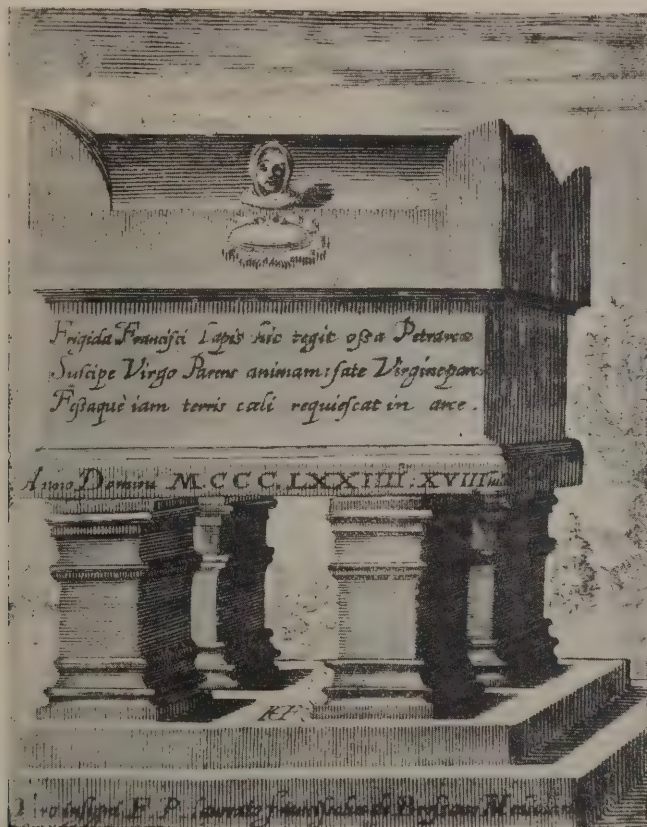 Frigida Francisci Lapis hic tegit ossa Petrarce
Suscipe Virgo Parens animam: sate Virgine parce
Fessaquè iam terris cæli requiescat in arce.
Anno Domini M.CCC.LXXIIII. XVIII
Viro insigni F. P. laureato